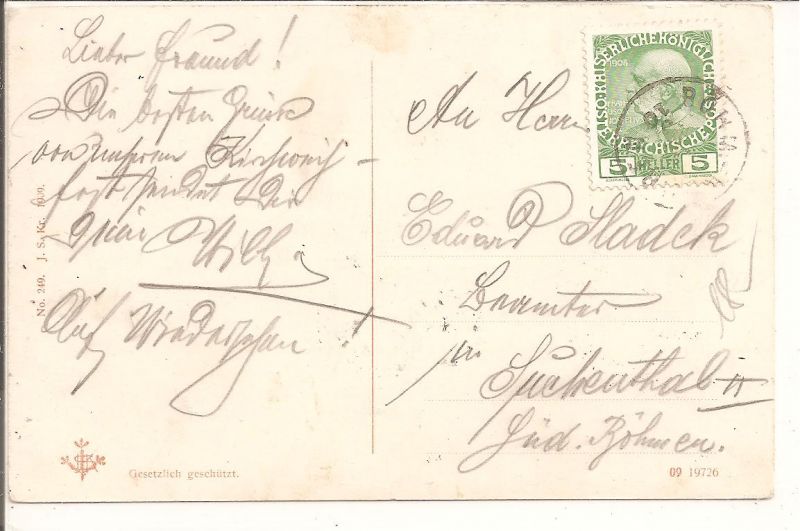 Lieber Freund!
Die besten Grüße
von unserem Kirchweih-
fest sendet Dir
Willi
Auf Wiedersehen!
An Herrn
Eduard Sladek
Beamter
in
Suchenthal II
Süd. Böhmen.
KAISERLICHE KÖNIGLICHE
ÖSTERREICHISCHE POST
1908
5 HELLER 5
No. 249. J. S. Kr. 1909.
Gesetzlich geschützt.
09 19726